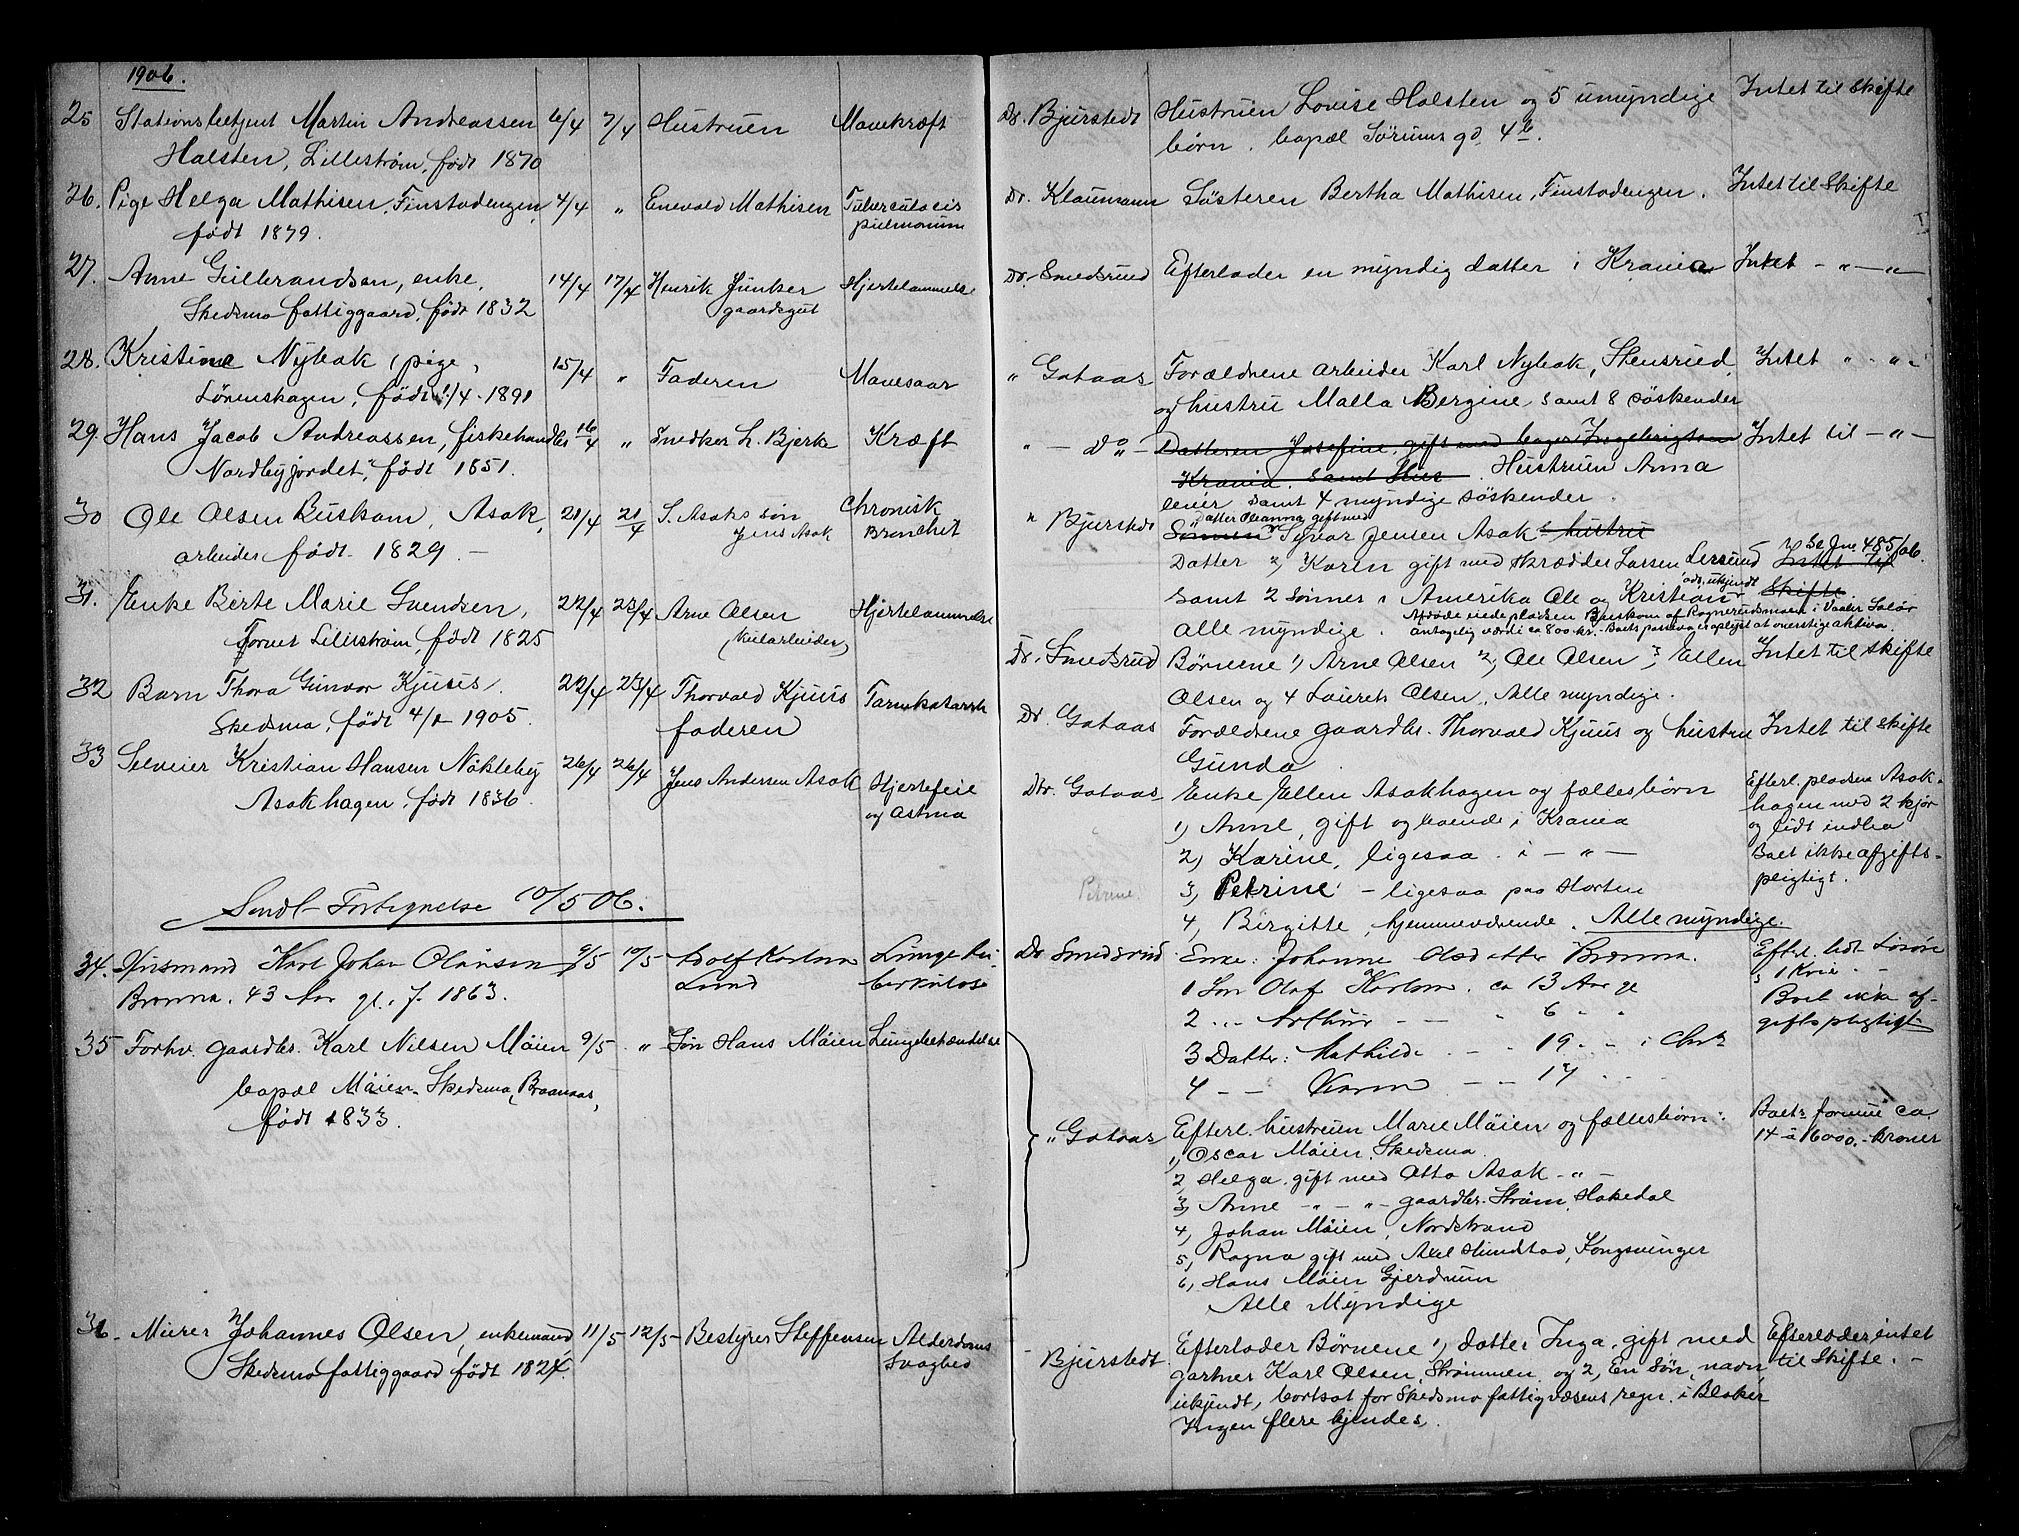 1906.
25 Stationsbetjent Martin Andreassen 6/4 7/4 Hustruen Mavekræft
Halsten, Lilleström, født 1870
26. Pige Helga Mathisen, Finstadengen, 4/4 " Enevald Mathisen Tuberculosis
født 1879. pulmonum
27. Anne Gulbrandsen, enke, 14/4 17/4 Henrik Junker Hjertelammelse
Skedsmo fattiggaard, født 1832 gaardsgut
28. Kristine Nybak, pige, 15/4 " Faderen Mavesaar
Lörenskogen, født /4 - 1891
29. Hans Jacob Andreassen, fiskehandler 16/4 " Snedker L. Bjerke Kræft
Nordbyjordet, født 1851.
30 Ole Olsen Buskom, Asak, 21/4 21/4 S. Asaks søn Chronisk
arbeider født 1829. — Jens Asak Bronchit
31. Enke Birte Marie Svendsen, 22/4 23/4 Arne Olsen Hjertelammelse
Tornet Lilleström, født 1825 (kulearbeider)
32 Barn Thora Gunvor Kjuus, 22/4 23/4 Thorvald Kjuus Tarmkatarrh
Skedsmo, født 4/1 1905. faderen
33 Selveier Kristian Hansen Nökleby 26/4 26/4 Jens Andersen Asak Hjertefeil
Asakhagen, født 1836. og Astma
Sendt Fortegnelse 10/5 06.
34. Husmand Karl Johan Olausen 9/5 10/5 Adolf Karlsen Lungetu-
Brænna. 43 Aar gl. f. 1863. Lund berkulose
35 Forhv. gaardbr. Karl Nilsen Möien 9/5 " Søn Hans Möien Lungebetændelse
bopæl Möien Skedsmo, Braanaas,
født 1833.
36. Murer Johannes Olsen, enkemand, 11/5 12/5 Bestyrer Steffensen Alderdoms
Skedsmo fattiggaard, født 1824. Svaghed
Dr. Bjurstedt Hustruen Louise Halsten og 5 umyndige Intet til Skifte
børn. bopæl Sörums gd. 4b.
Dr. Klaumann Søsteren Bertha Mathisen, Finstadengen. Intet til Skifte
Dr. Smedsrud Efterlader en myndig datter i Krania Intet - " - " -
" Gotaas Forældrene arbeider Karl Nybak, Stensrud Intet " - " -
og hustru Malla Bergine samt 8 søskender
" - Do - Datteren Josefine, gift med bager Ingebrigtsen Intet til - " -
Krania. samt Hus. Hustruen Anna
lever samt 4 myndige søskender.
" Bjurstedt datter Oleanna gift med
Sønnen Syver Jensen Asak & hustru
Datter 2, Karen gift med skrædder Larsen Lersund Se Jnr 485/06. Intet til
samt 2 Sønner i Amerika Ole og Kristian ads. ukjendt Skifte.
Afdøde eiede pladsen Buskom af Ragnerudsmoen i Vaaler Solør
Alle myndige. antagelig værdi ca 800 kr. Boets passiva er oplyst at overstige aktiva.
Dr. Smedsrud Børnene 1, Arne Olsen 2, Ole Olsen 3, Ellen Intet til Skifte
Olsen og 4 Laurits Olsen, Alle myndige.
Dr. Gotaas Forældrene gaardbr. Thorvald Kjuus og hustru Intet til Skifte
Gunda
Dr. Gotaas Enke Ellen Asakhagen og fællesbørn Efterl. pladsen Asak-
1, Anne, gift og boende i Krania hagen med 2 kjør
2, Karine, ligesaa i - " - og lidt indbo
Petrine. 3, Petrine - ligesaa paa Horten Boet ikke afgifts-
4, Birgitte, hjemmeværende. Alle myndige. pligtigt.
Dr Smedsrud Enke: Johanne Olsdatter Brænna. Efterl. lidt Løsøre
1 Søn Olaf Karlsen. ca 13 Aar gl & 1 Ku.
2 .. Arthur - - " 6 " " Boet ikke af-
3 Datter: Mathilde - - 19 - - i Chra giftspligtigt
4 - - Karen - - 17 - -
" Gotaas Efterl. hustruen Marie Möien og fællesbørn: Boets formue ca.
1, Oscar Möien, Skedsmo 14 à 16000.- kroner
2, Helga, gift med Otto Asak - " -
3, Anne - " - " - gaardbr. Strøm, Hakedal
4, Johan Möien, Nordstrand
5, Ragna gift med Axel Hundstad, Kongsvinger
6, Hans Möien Gjerdrum
Alle Myndige
- Bjurstedt. Efterlader Børnene 1, datter Inga, gift med Efterlader intet
gartner Karl Olsen, Strømmen og 2, En Søn, navn til Skifte. -
ukjendt, bortsat for Skedsmo fattigvæsens regn. i Blaker
Ingen flere kjendes.